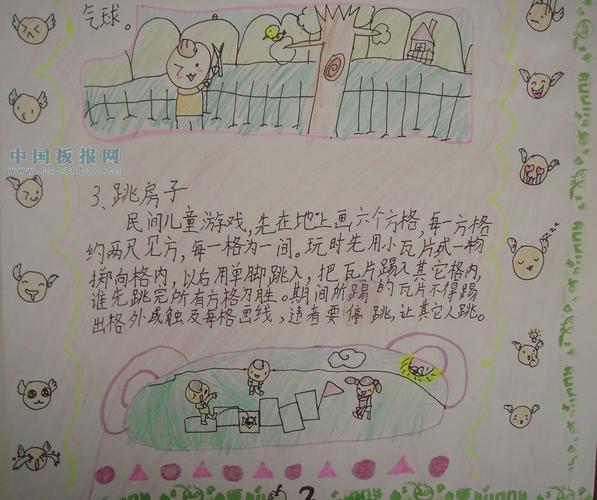 气球。
中国板报网
www.cnbanbao.cn
3、跳房子
民间儿童游戏,先在地上画六个方格,每一方格
约两尺见方,每一格为一间。玩时先用小瓦片或一物
掷向格内,以后用单脚跳入,把瓦片踢入其它格内,
谁先跳完所有方格为胜。期间所踢的瓦片不得踢
出格外或触及每格画线,违者要停跳,让其它人跳。
2